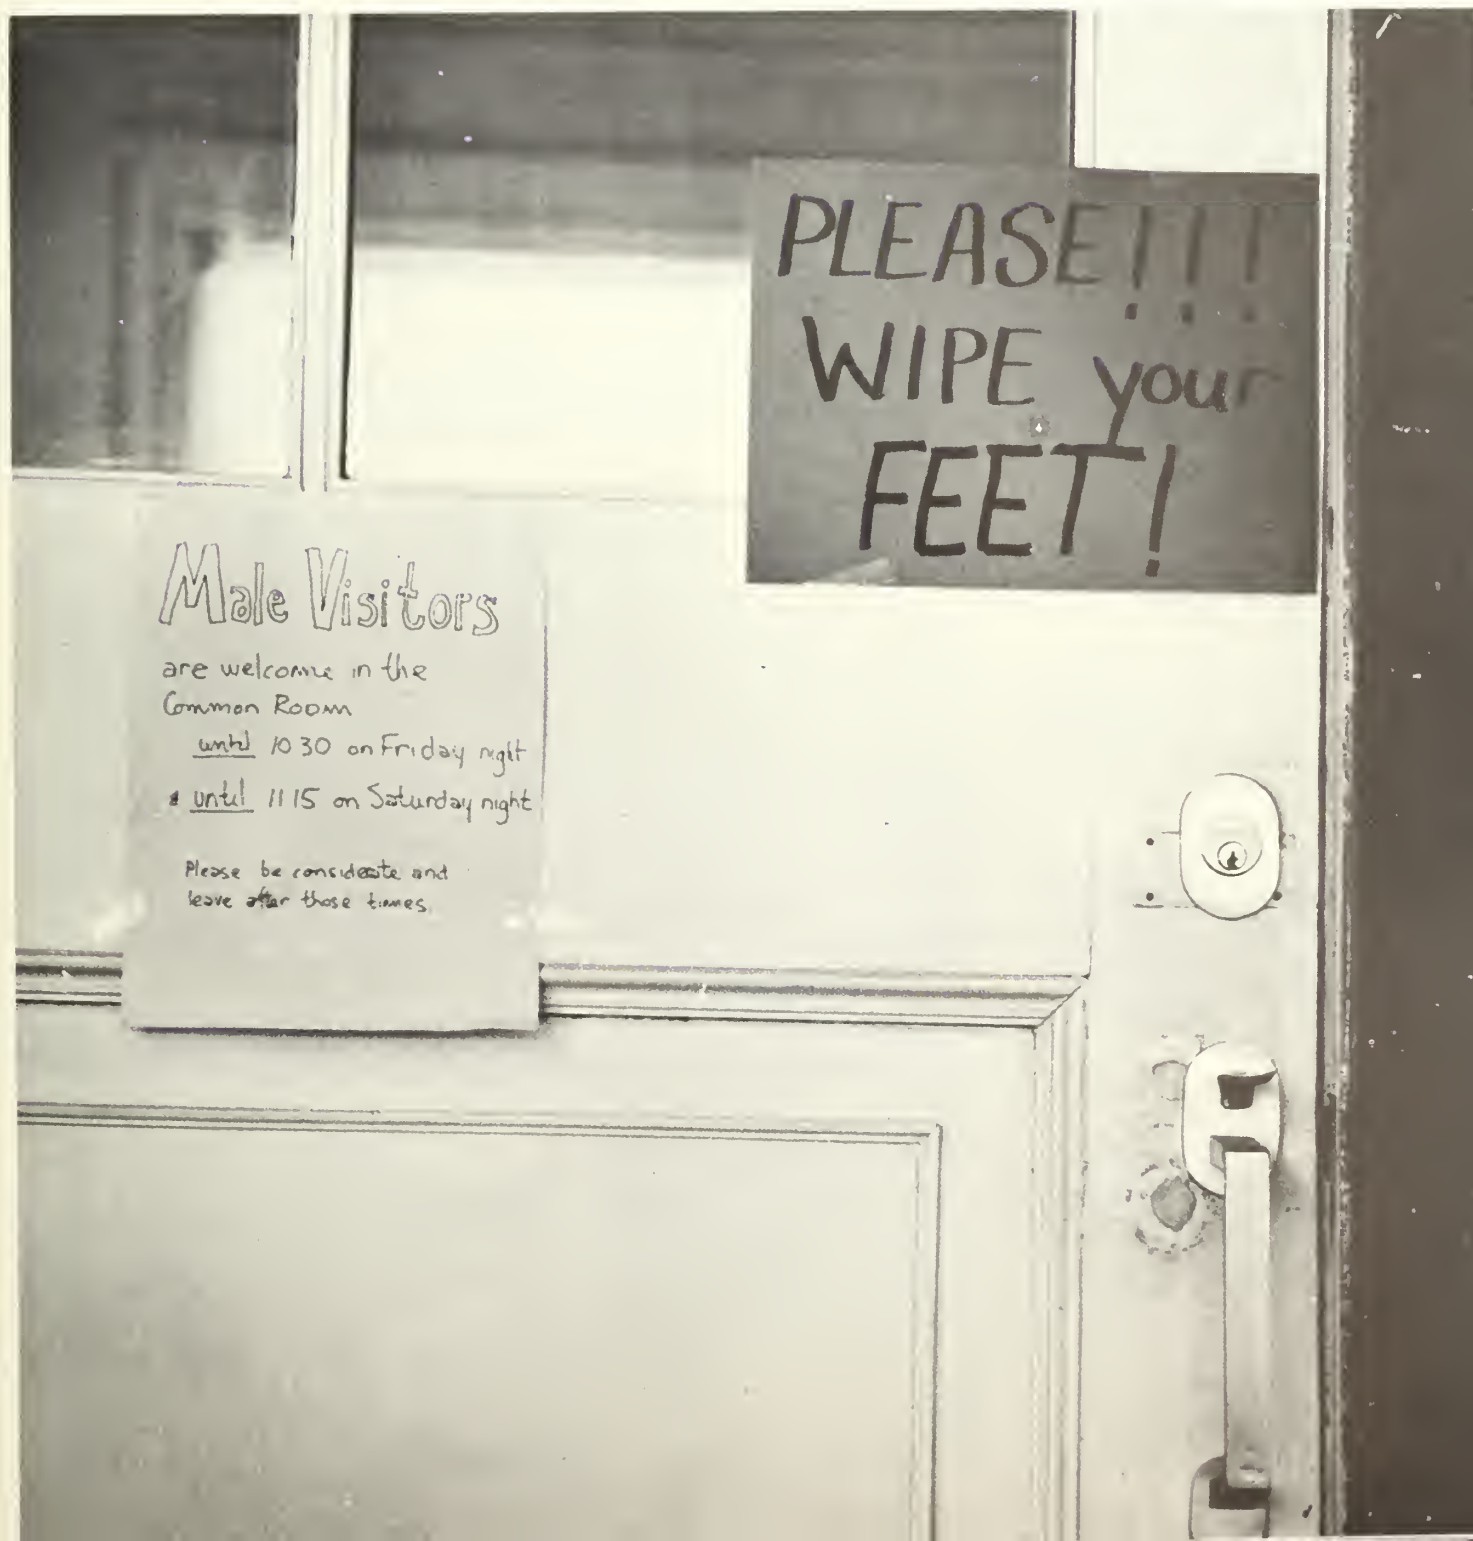 PLEASE!!!
WIPE your
FEET!
Male Visitors
are welcome in the
Common Room
until 10 30 on Friday night
until 11 15 on Saturday night
Please be considerate and
leave after those times.